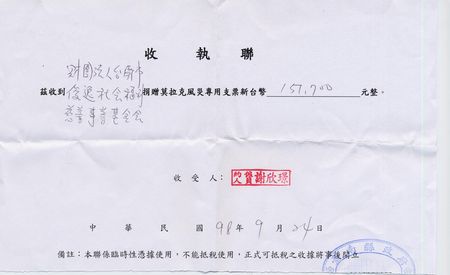 收執聯
財團法人台南市
茲收到 捐贈莫拉克風災專用支票新台幣 157,700 元整。
社会福利
慈善事業基金会
收受人: 謝欣璟
中華民國 98 年 9 月 24 日
備註:本聯係臨時性憑據使用,不能抵稅使用,正式可抵稅之收據將事後開立